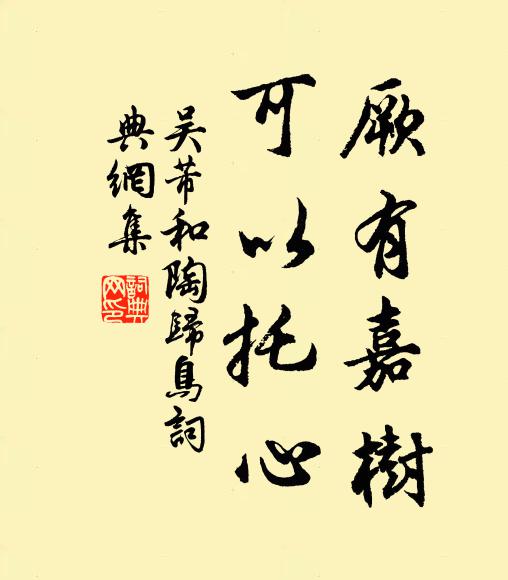 厥有嘉樹
可以托心
吴芾和陶歸鳥詞
典網集
詞典
网印